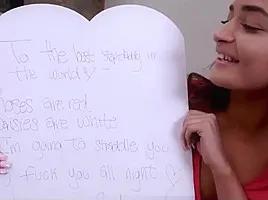 To the best stepdaddy in
the world!
Roses are red
Daisies are white
I'm going to straddle you
fuck you all night